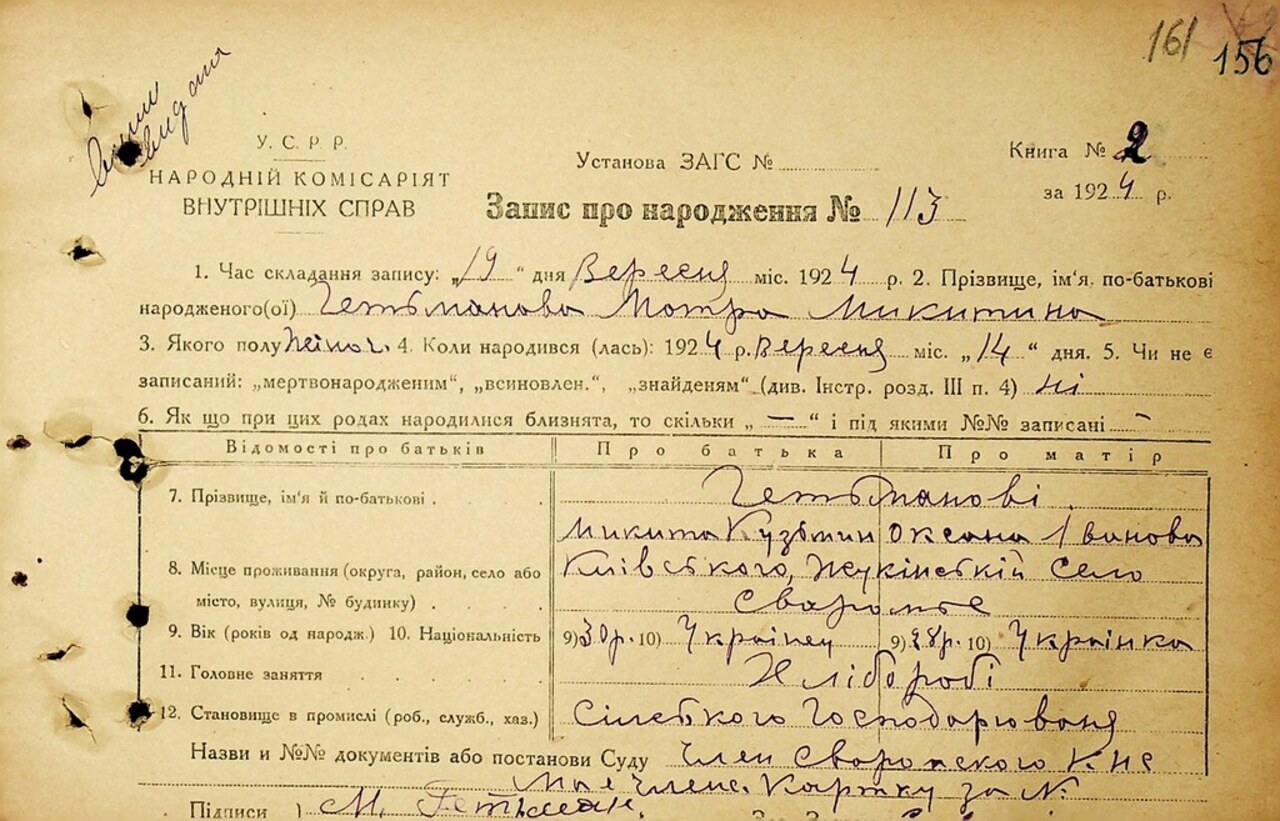 161
156
видана
У. С. Р. Р.
НАРОДНІЙ КОМІСАРІЯТ
ВНУТРІШНІХ СПРАВ
Установа ЗАГС №
Книга № 2
за 1924 р.
Запис про народження № 113
1. Час складання запису: „19“ дня Вересня міс. 1924 р. 2. Прізвище, ім'я, по-батькові
народженого(ої) Гетьманова Мотра Микитина
3. Якого полу жіноч. 4. Коли народився (лась): 1924 р. Вересня міс. „14“ дня. 5. Чи не є
записаний: „мертвонародженим“, „всиновлен.“, „знайденям“ (див. Інстр. розд. III п. 4) ні
6. Як що при цих родах народилися близнята, то скільки „—“ і під якими №№ записані -
Відомості про батьків Про батька Про матір
7. Прізвище, ім'я й по-батькові Гетьманові
Микита Кузьмин Оксана Іванова
8. Місце проживання (округа, район, село або Київського, Жукінській село
місто, вулиця, № будинку) Сваромье
9. Вік (років од народж.) 10. Національність 9) 30р. 10) Українец 9) 28р. 10) Українка
11. Головне заняття Хліборобі
12. Становище в промислі (роб., служб., хаз.) Сілського Господарювання
Назви и №№ документів або постанови Суду Член Сваромского КНС
має членс. Картку за №
Підписи М. Гетьман.